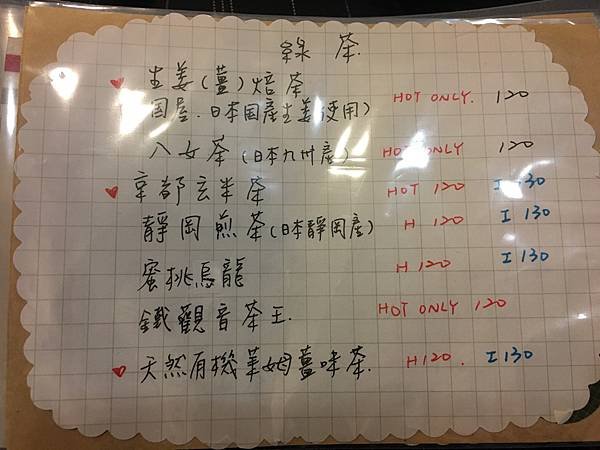 綠茶.
♥ 生姜(薑)焙茶 HOT ONLY. 120
国屋.日本国産生姜使用)
八女茶(日本九州産) HOT ONLY 120
♥ 京都玄米茶 HOT 120 I 130
靜岡煎茶(日本靜岡產) H 120 I 130
蜜桃烏龍 H 120 I 130
鐵觀音茶王. HOT ONLY 120
♥ 天然有機薑味茶. H120. I 130